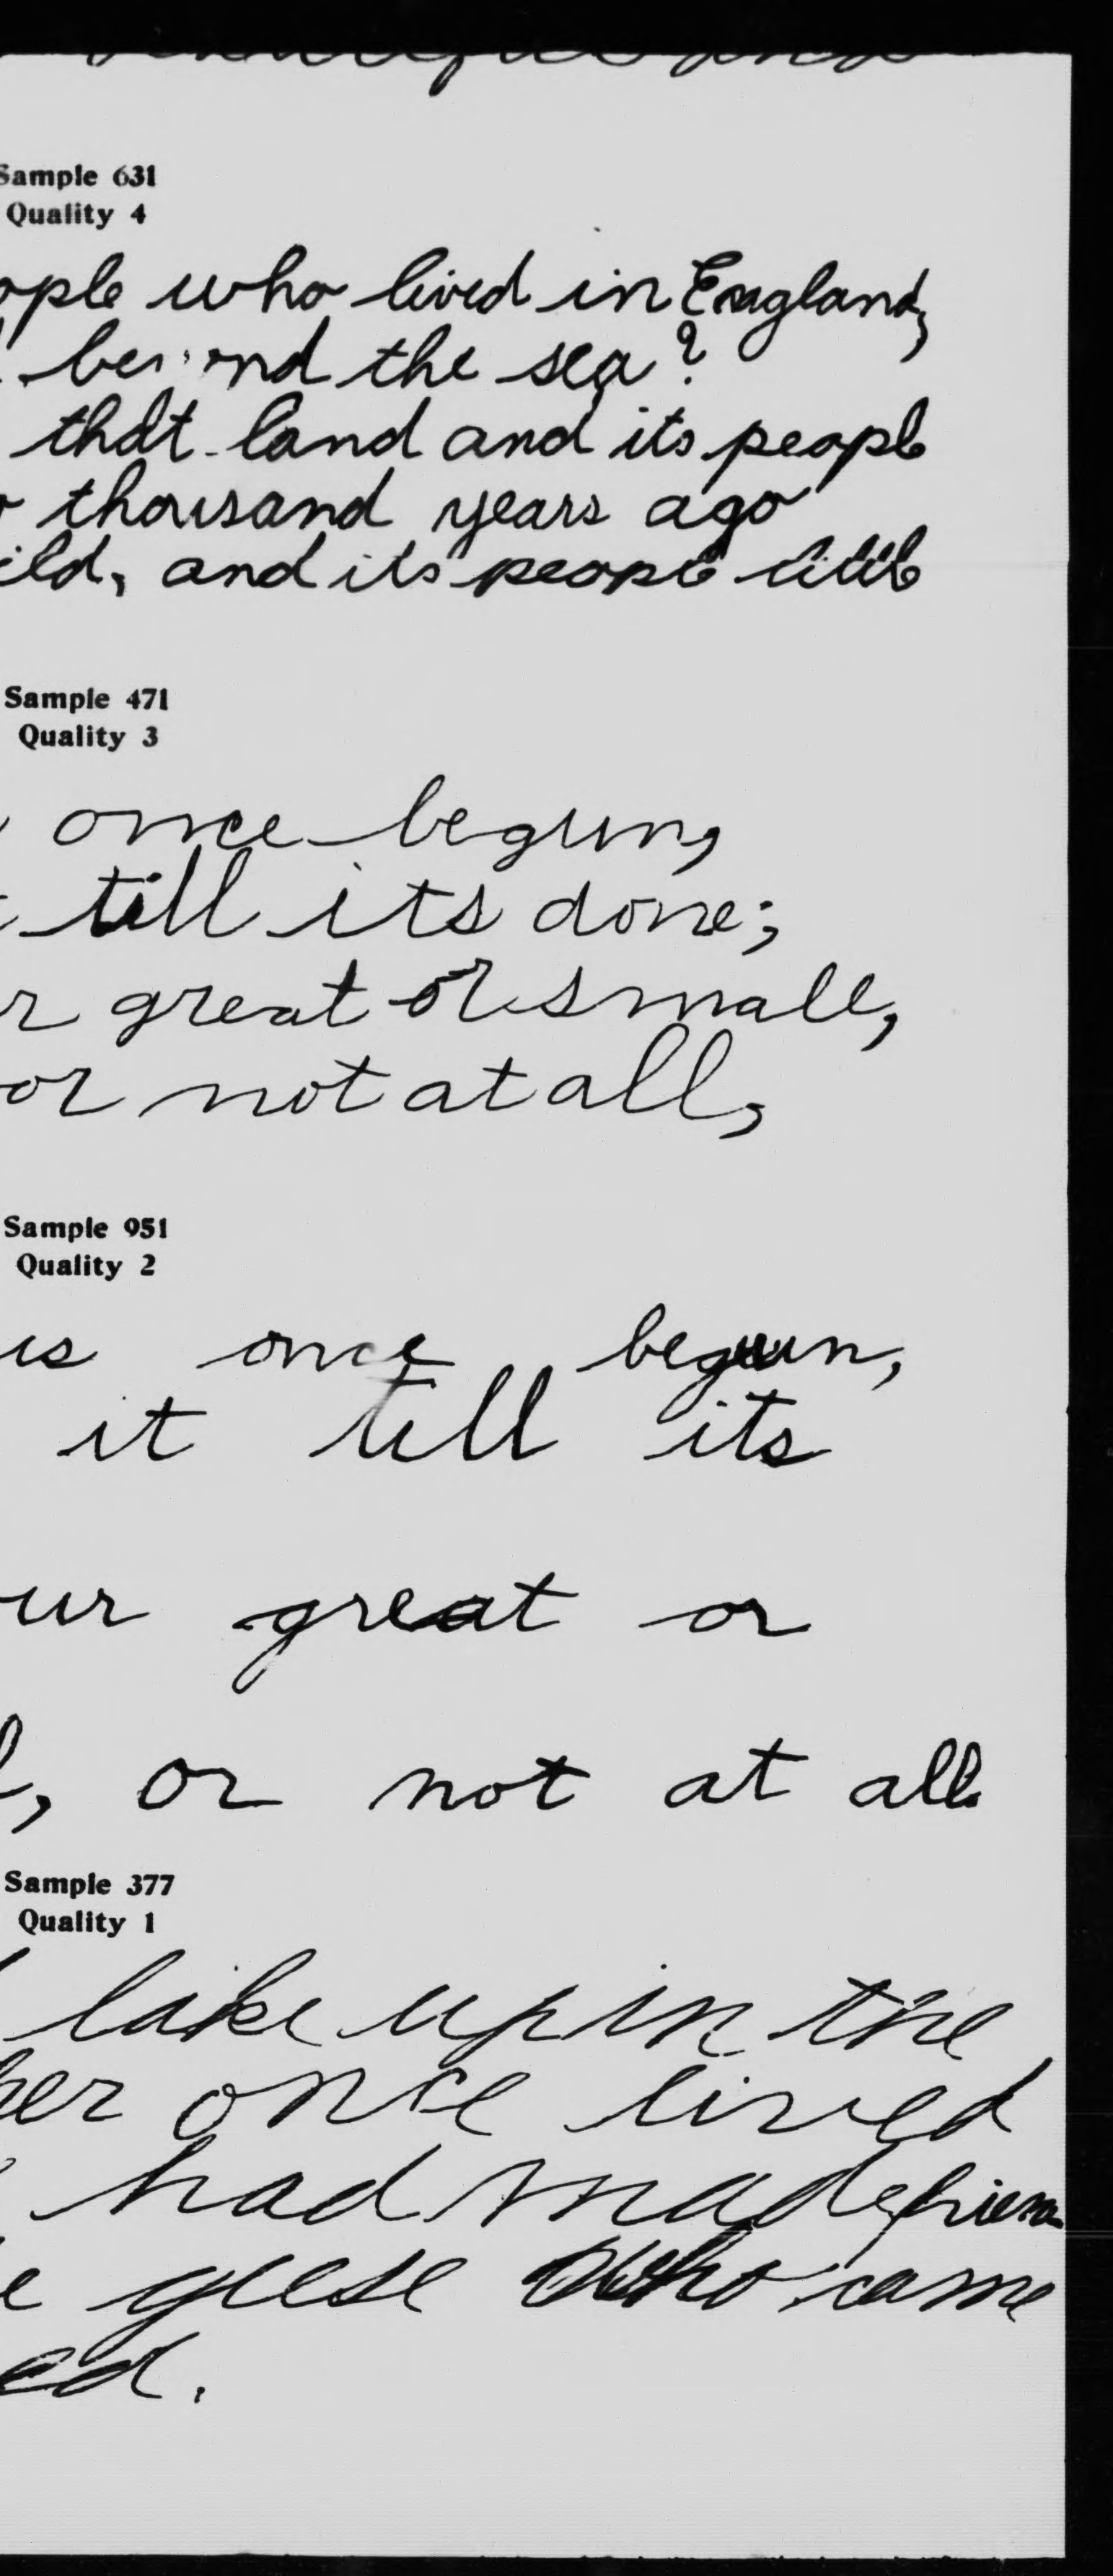 Sample 631
Quality 4
ople who lived in England,
the sea?
that land and its people
thousand years ago
ild, and its people
Sample 471
Quality 3
once begun,
till its done;
r great or small,
or not at all,
Sample 951
Quality 2
is once begun,
it till its
ur great or
l, or not at all
Sample 377
Quality 1
lake up in the
her once lived
had made frien
e geese who came
ed.